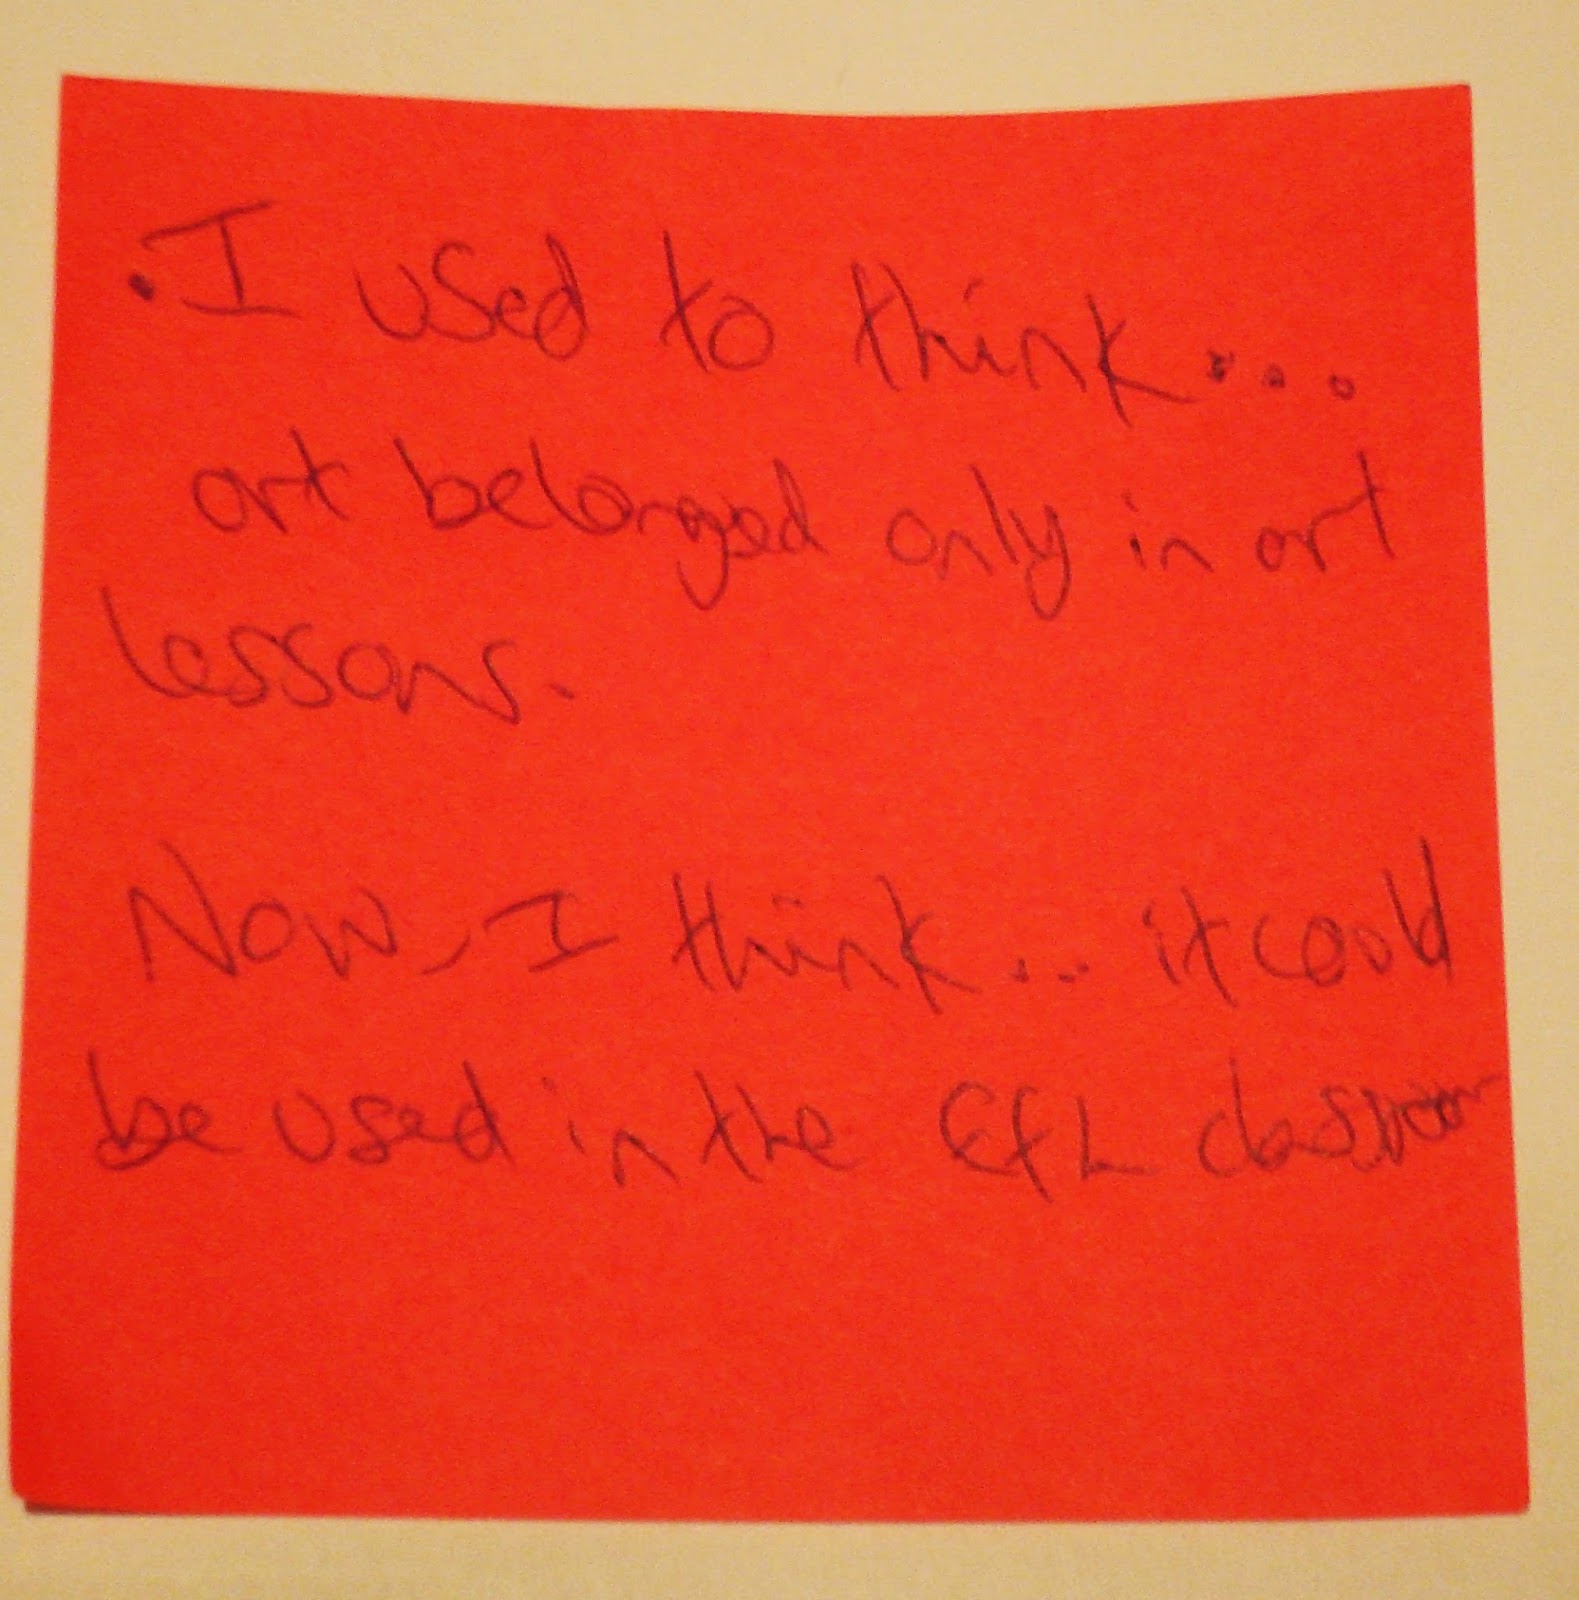 • I used to think...
art belonged only in art
lessons.
Now, I think... it could
be used in the EfL classroom